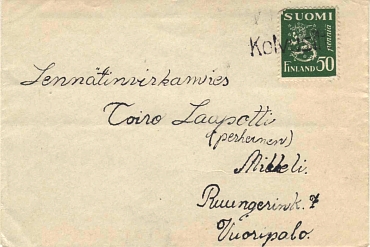 SUOMI
penniä
FINLAND 50
Lennätinvirkamies
Toivo Laupotti
(perheineen)
Mikkeli.
Ruungerink. 7
Vuoripalo.